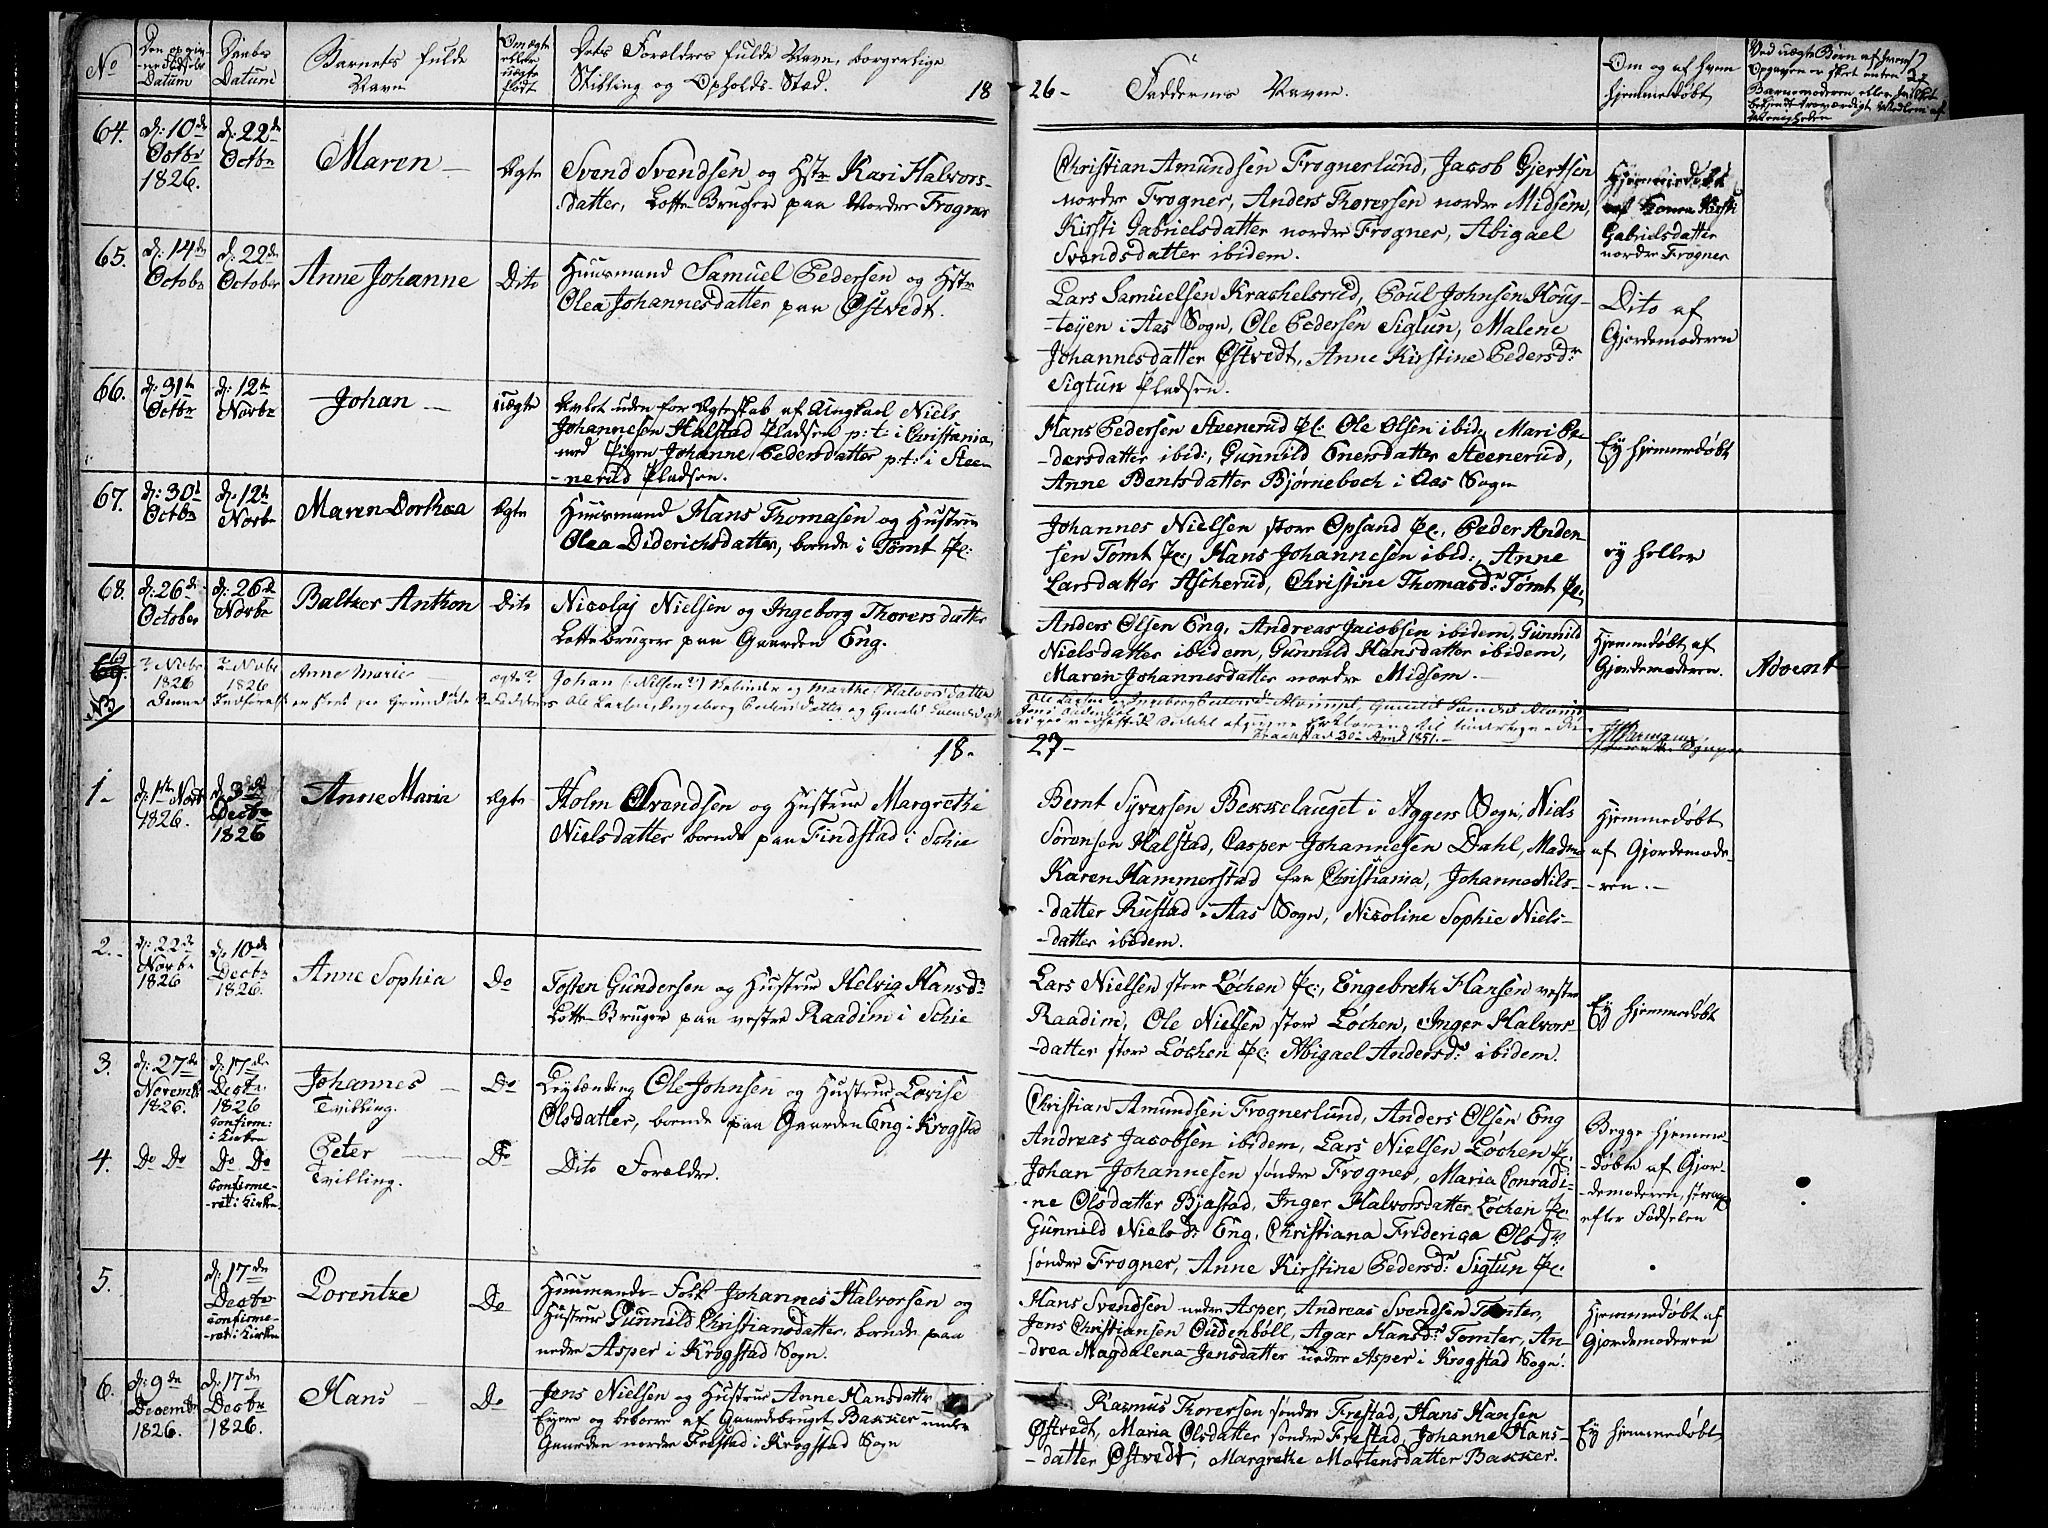 No
Den opgiv-
-ne Fødsels
Datum
Daabs
Datum
Barnets fulde
Navn
Om ægte
eller
uægte
født
Dets Forældres fulde Navn, borgerlige
Stilling og Opholds-Sted.
18
26-
Faddernes Navne.
Om og af hvem
hjemmedøbt
Ved uægte Børn af hvem
Opgaven er skeet enten
Barnemoderen eller
bekjendt troværdigt Medlem af
Menigheden
64.
d: 10de
Octbr
1826.
d: 22de
Octbr
Maren —
Ægte
Svend Svendsen og Hstr Kari Halvors-
-datter, Lotte-Bruger paa Nordre Frogner
Christian Amundsen Frognerlund, Jacob Gjertsen
nordre Frogner, Anders Thoresen nordre Midsem,
Kirsti Gabrielsdatter nordre Frogner, Abigael
Svendsdatter ibidem.
Hjemmedøbt
af Konen Kirsti
Gabrielsdatter
nordre Frogner
65.
d: 14de
Octobr
d: 22de
October
Anne Johanne
Dito
Huusmand Samuel Pedersen og Hstr
Olea Johannesdatter paa Østvedt.
Lars Samuelsen Krachelsrud, Poul Johnsen Houg-
-tøyen i Aas Sogn, Ole Pedersen Sigtun, Malene
Johannesdatter Østvedt, Anne Kirstine Pedersdr
Sigtun Pladsen.
Dito af
Gjordemoderen
66.
d: 31te
Octbr
d: 12te
Novbr
Johan —
uægte
Avlet uden for Ægteskab af Ungkarl Niels
Johannesen Halstad Pladsen p: t: i Christiania,
med Pigen Johanne Pedersdatter p: t: i Steen-
-nerud Pladsen.
Hans Pedersen Steenerud Pl: Ole Olsen ibid: Mari Pe-
-dersdatter ibid:, Gunnild Enersdatter Steenerud,
Anne Bentsdatter Bjørnebech i Aas Sogn
Ey hjemmedøbt
67.
d: 30te
Octbr
d: 12te
Novbr
Maren Dorthea
Ægte
Huusmand Hans Thomasen og Hustrue
Olea Diderichsdatter, boende i Tomt Pl:
Johannes Nielsen store Opsand Pl:, Peder Ander-
sen Tomt Pl:, Hans Johannesen ibid:, Anne
Larsdatter Ascherud, Christine Thomasdr Tomt Pl:
ey heller
68.
d: 26de
October
d: 26de
Novbr
Baltzer Anthon
Dito
Nicolaj Nielsen og Ingeborg Thoresdatter
Lottebruger paa Gaarden Eng.
Anders Olsen Eng, Andreas Jacobsen ibidem, Gunnild
Nielsdatter ibidem, Gunnild Hansdatter ibidem,
Maren Johannesdatter nordre Midsem. —
Hjemmedøbt af
Gjordemoderen.
Advent
69
NB
? Novbr
1826
? Novbr
1826
Anne Marie
ægte?
Johan (: Nilsen?:) og Marthe Halvorsdatter
Denne Indførsel er skeet paa Grund af de Fadderes Ole Larsen, Ingeborg Pedersdatter og Gunild Svendsdatter
Krogstad 30te April 1851. —
18-
27-
1-
d: 1ste Novbr
1826.
d: 3de
Decbr
1826
Anne Maria
ægte
Holm Svendsen og Hustrue Margrethe
Nielsdatter boende paa Findstad i Schie
Bernt Syversen Bekkelauget i Aggers Sogn, Niels
Sørensen Halstad, Casper Johannesen Dahl, Madme
Karen Hammerstad fra Christiania, Johanne Nils-
-datter Rustad i Aas Sogn, Nicoline Sophie Niels-
-datter ibidem.
Hjemmedøbt
af Gjordemode-
-ren. —
2.
d: 22de
Novbr
1826
d: 10de
Decbr
1826.
Anne Sophia
Do
Tosten Gundersen og Hustrue Helvig Hansdr
Lotte-Bruger paa vestre Raadim i Schie
Lars Nielsen store Løchen Pl:, Engebreth Hansen vestre
Raadim, Ole Nielsen store Løchen, Inger Halvors-
-datter store Løchen Pl: Abigael Andersdr ibidem.
Ey hjemmedøbt
3.
d: 27de
Novembr
1826.
d: 17de
Decbr
1826
Confirm:
i Kirken
Johannes —
Tvilling.
Do
Leylænding Ole Johnsen og Hustrue Lovise
Olsdatter, boende paa Gaarden Eng i Krogstad
Christian Amundsen Frognerlund, Anders Olsen Eng
Andreas Jacobsen ibidem, Lars Nielsen Løchen Pl:
Johan Johannesen søndre Frogner, Maria Conradi-
-ne Olsdatter Bjastad, Inger Halvorsdatter Løchen Pl:
Gunnild Nielsdr Eng, Christiana Friderica Olsdr
søndre Frogner, Anne Kirstine Pedersdr Sigtun Pl:
Begge hjemme-
-døbte af Gjor-
-demoderen, strax
efter Fødselen
4.
Do Do
Do Do
Confirme-
-ret i Kirken
Peter —
Tvilling.
Do
Dito Forældre.
5.
d: 17de
Decbr
Confirme-
-ret i Kirken
Lorentze
Do
Huusmands-Folk Johannes Halvorsen og
Hustrue Gunnild Christiansdatter, boende paa
nedre Asper i Krogstad Sogn.
Hans Svendsen nedre Asper, Andreas Svendsen Tomter,
Jens Christiansen Oudenbøll, Agar Hansdr Tomter, An-
-drea Magdalena Jensdatter nedre Asper i Krogstad Sogn.
Hjemmedøbt af
Gjordemoderen
6.
d: 9de
Decembr
1826.
d: 17de
Decbr
1826.
Hans —
Do
Jens Nielsen og Hustrue Anne Hansdatter
Eyere og beboere af Gaardebruget Bakker under
Gaarden nordre Frestad i Krogstad Sogn
Rasmus Thoresen søndre Frestad, Hans Hansen
Østvedt, Maria Olsdatter søndre Frestad, Johanne Hans-
-datter Østvedt, Margrethe Mortensdatter Bakker.
Ey hjemmedøbt